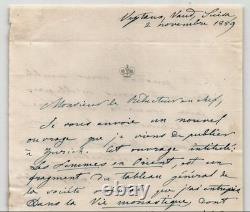 Veytaux, Vaud, Suisse
2 novembre 1859
Monsieur le Rédacteur en chef,
Je vous envoie un nouvel
ouvrage que je viens de publier
à Zurich. Cet ouvrage intitulé:
Les femmes en Orient est un
fragment du tableau général de
la société que j'ai entrepris
Dans la Vie monastique, dont